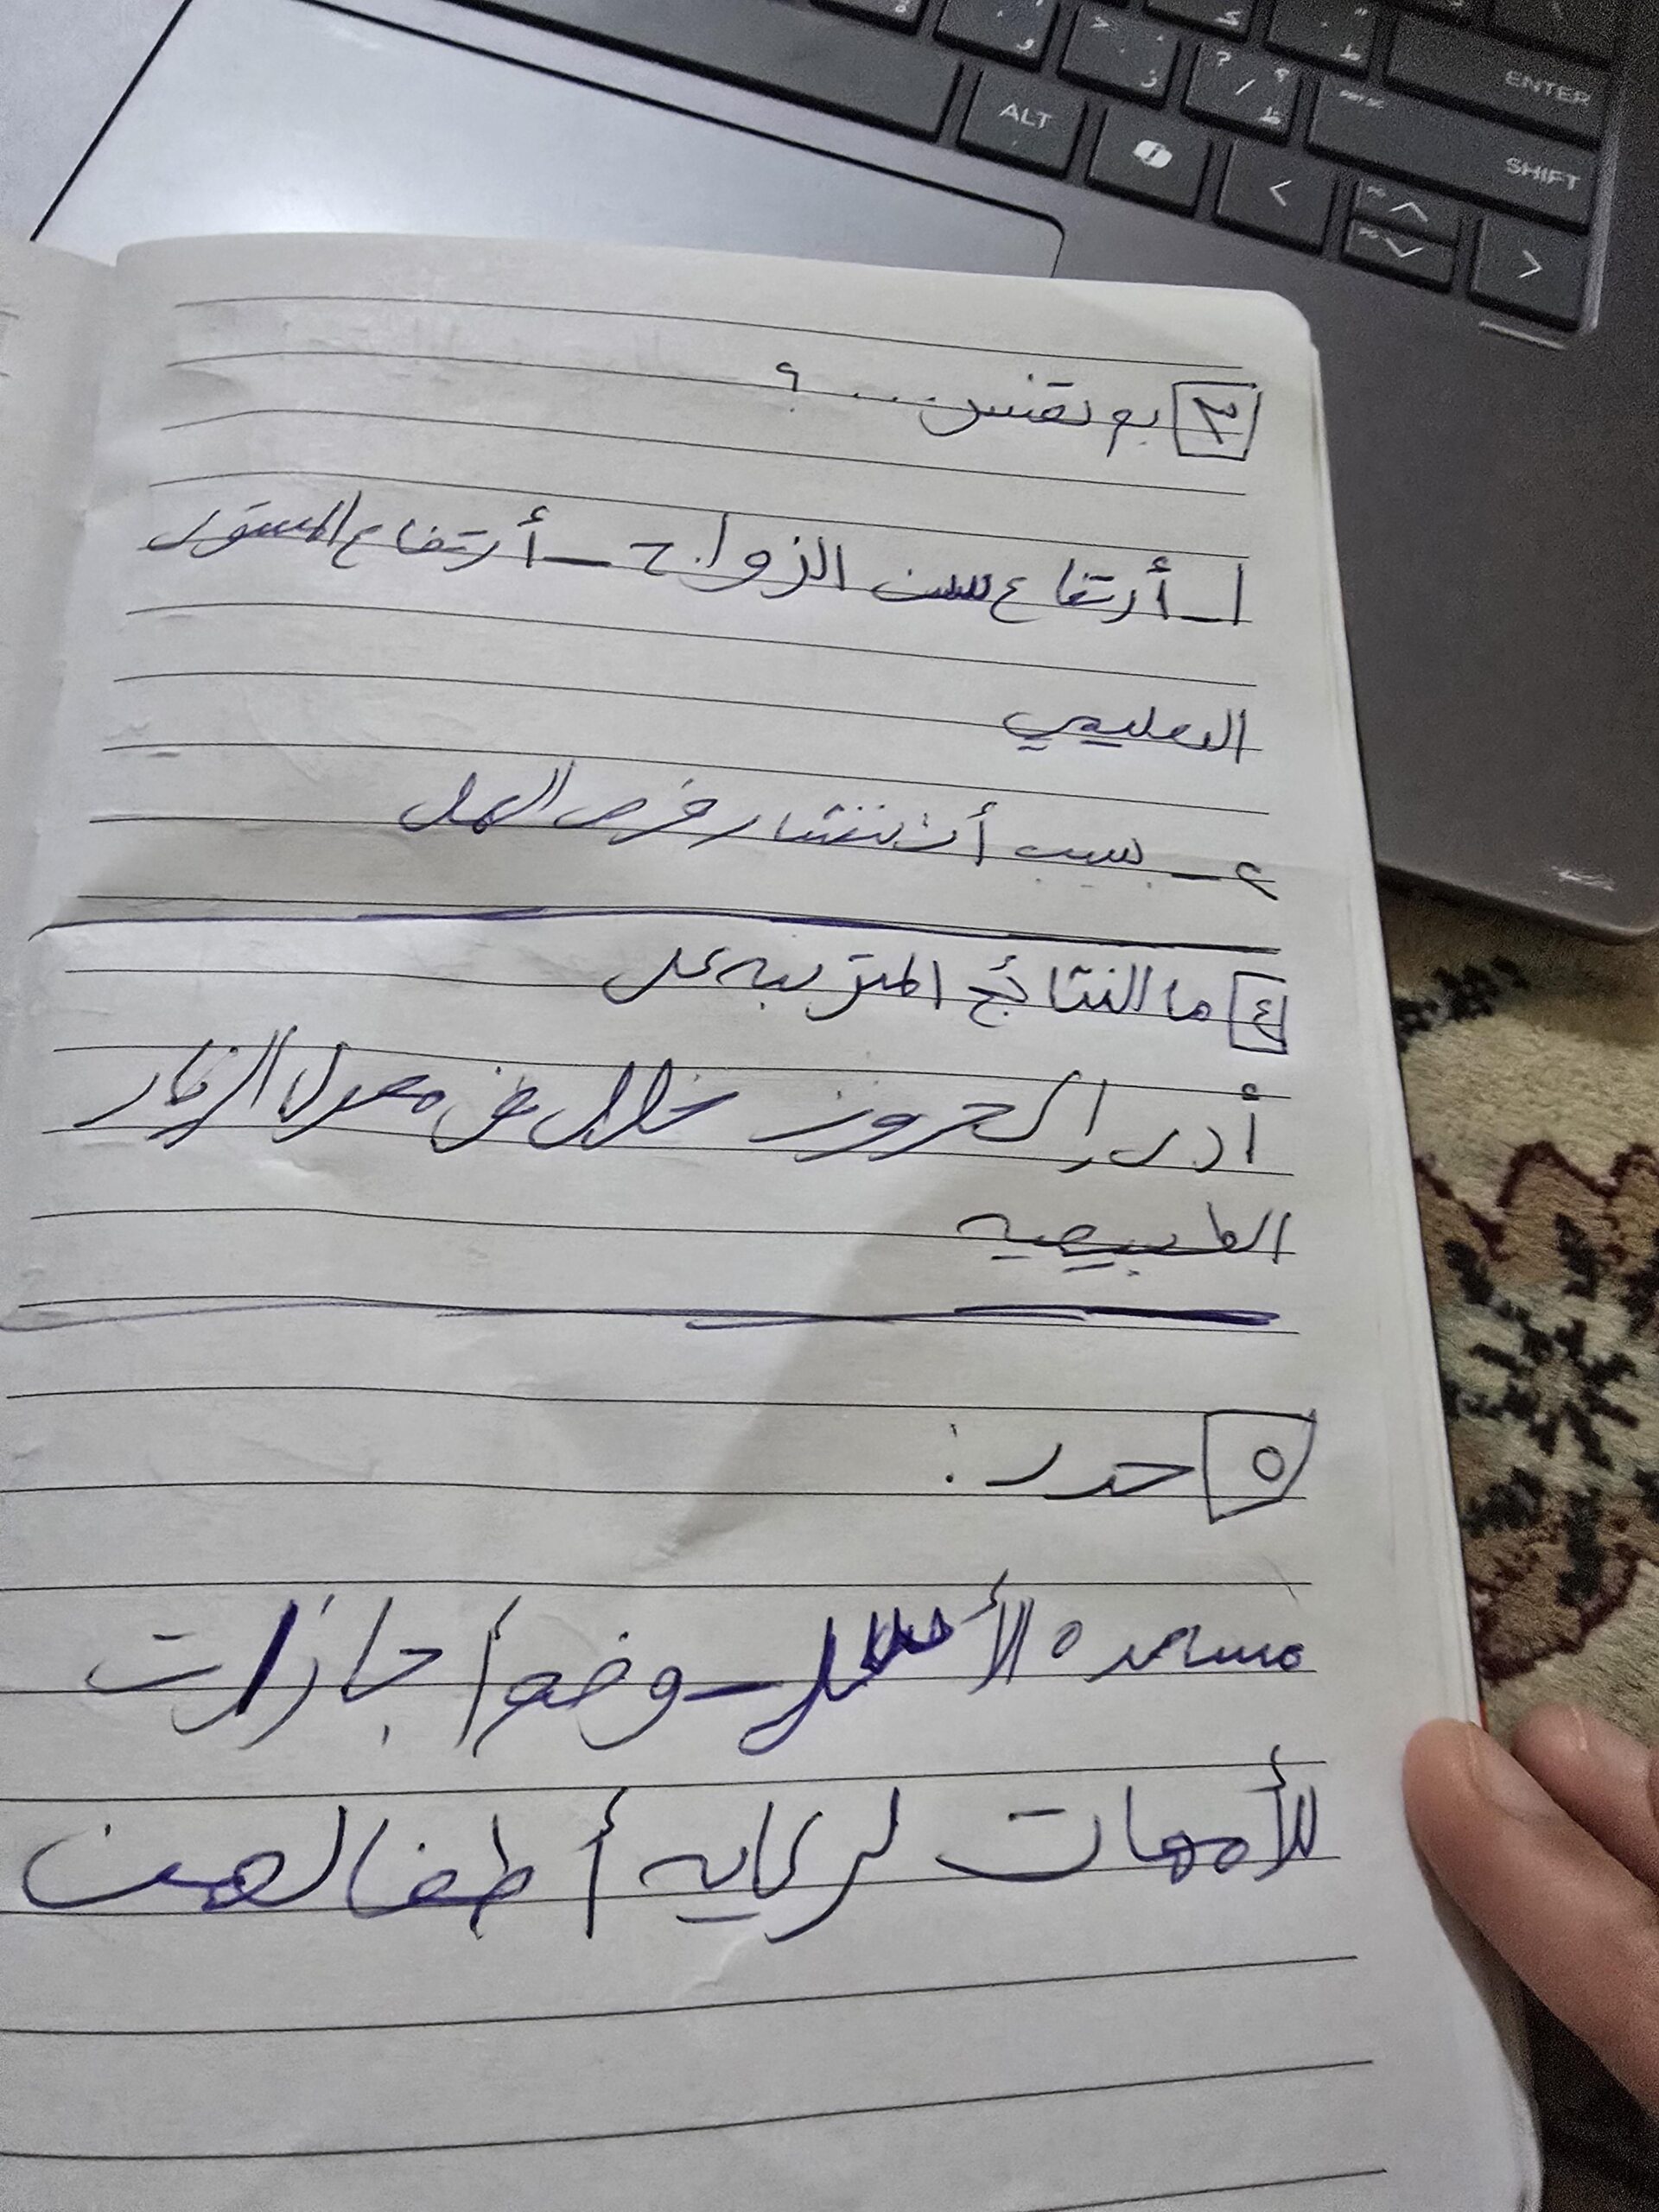 ENTER
SHIFT
ALT
٣ بم تفسر ... ؟
١ - أرتفاع سن الزواج - أرتفاع المستوى
التعليمي
٢ - بسبب أنتشار فرص العمل
٤ ما النتائج المترتبه على
أدى إلى حدوث خلل في معدل الزياده
الطبيعيه
٥ حدد :
مساعده الأسر - وضع أجازات
للأمهات لرعايه أطفالهن